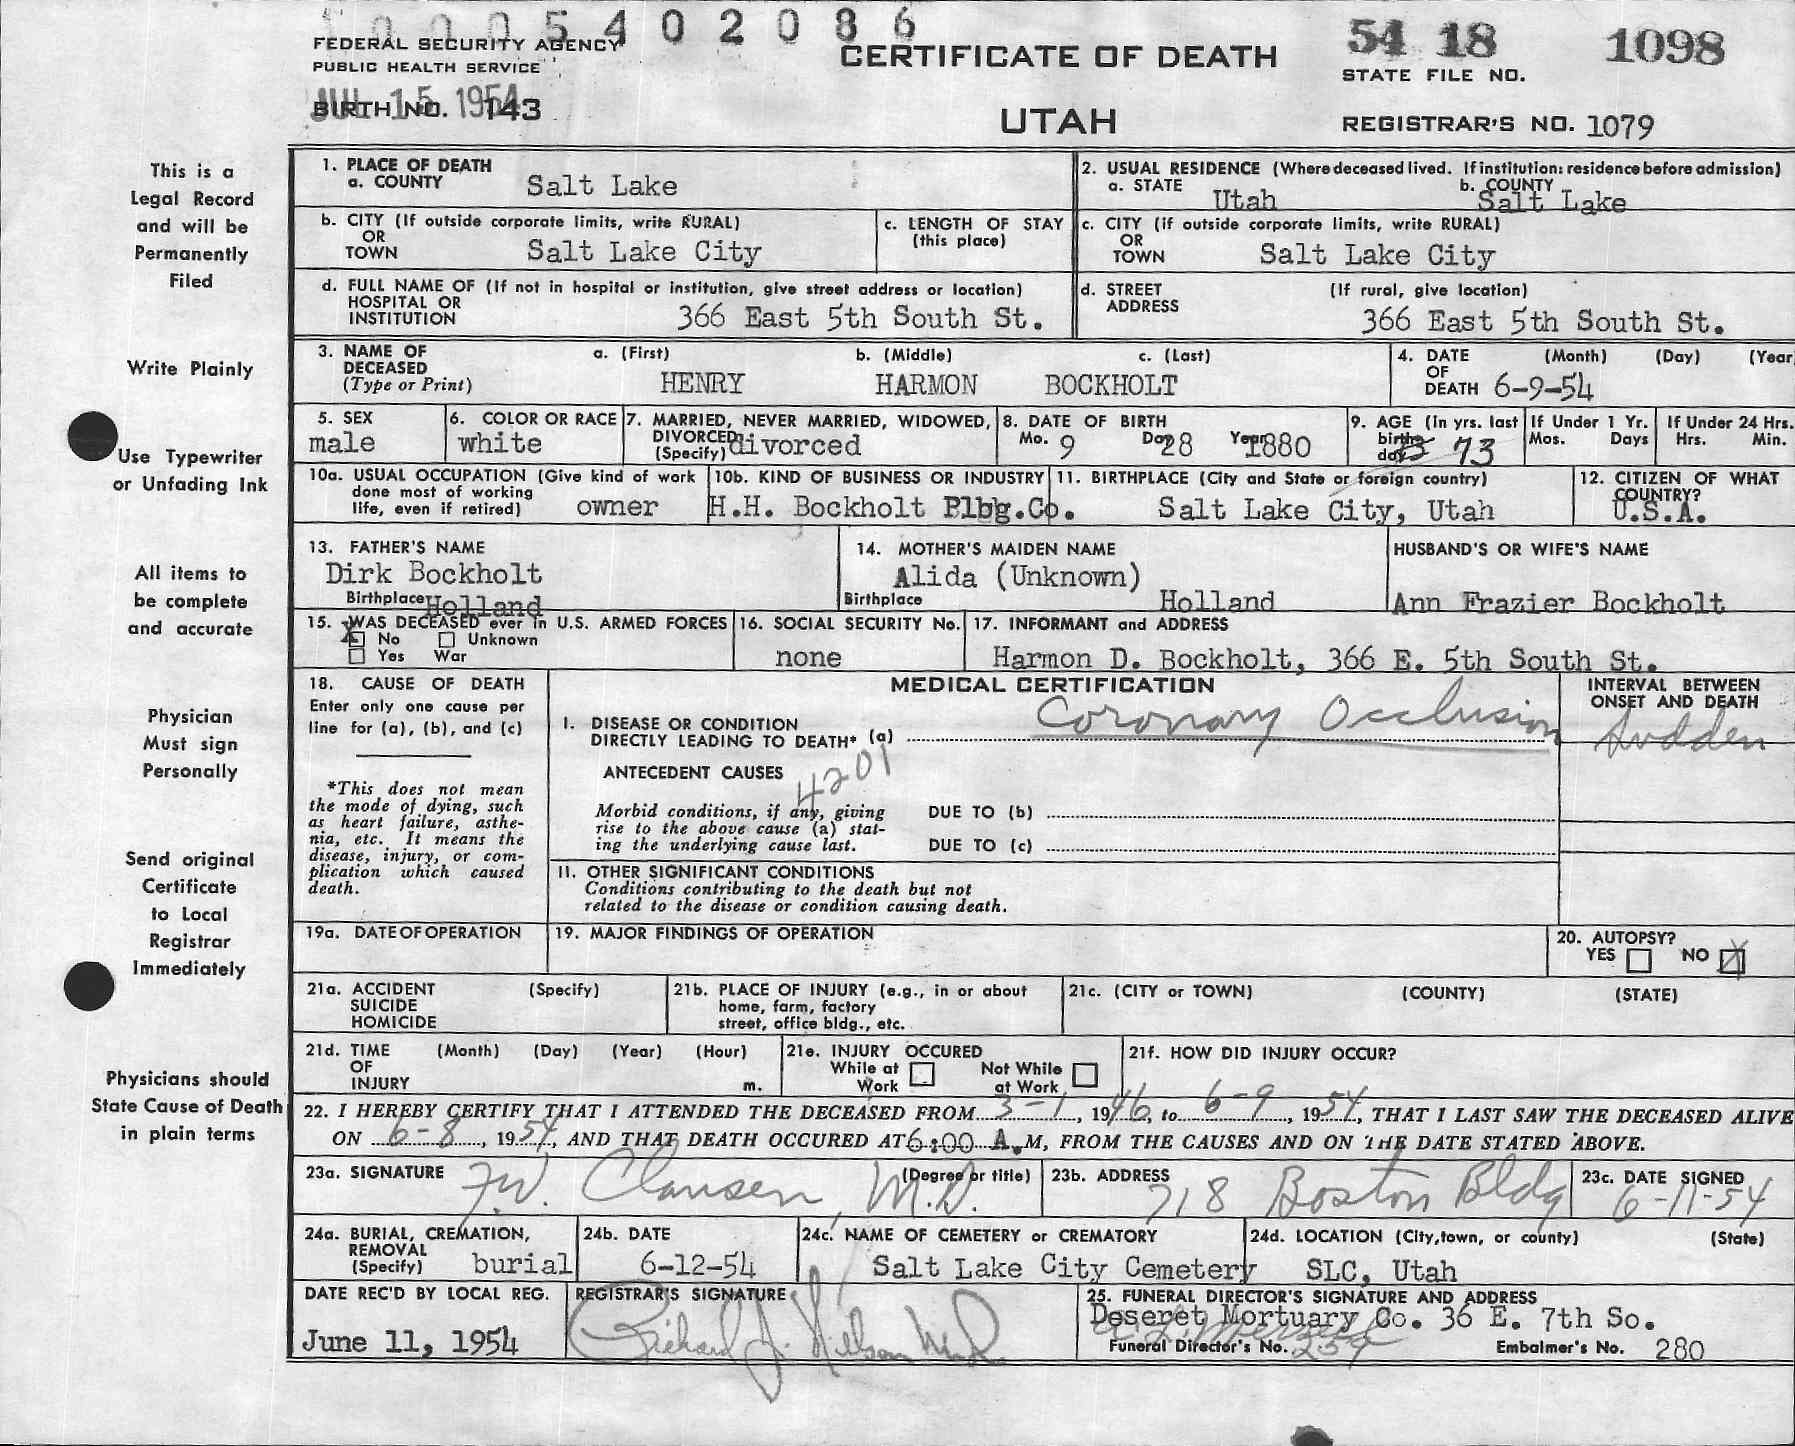 0005402086
FEDERAL SECURITY AGENCY
PUBLIC HEALTH SERVICE
CERTIFICATE OF DEATH
54 18 1098
STATE FILE NO.
BIRTH NO. 143
JUL 15 1954
UTAH
REGISTRAR'S NO. 1079
This is a
Legal Record
and will be
Permanently
Filed
Write Plainly
Use Typewriter
or Unfading Ink
All items to
be complete
and accurate
Physician
Must sign
Personally
Send original
Certificate
to Local
Registrar
Immediately
Physicians should
State Cause of Death
in plain terms
1. PLACE OF DEATH
a. COUNTY Salt Lake
2. USUAL RESIDENCE (Where deceased lived. If institution: residence before admission)
a. STATE Utah b. COUNTY Salt Lake
b. CITY (If outside corporate limits, write RURAL)
OR
TOWN Salt Lake City
c. LENGTH OF STAY
(this place)
c. CITY (if outside corporate limits, write RURAL)
OR
TOWN Salt Lake City
d. FULL NAME OF (If not in hospital or institution, give street address or location)
HOSPITAL OR
INSTITUTION 366 East 5th South St.
d. STREET (If rural, give location)
ADDRESS 366 East 5th South St.
3. NAME OF DECEASED
(Type or Print)
a. (First) b. (Middle) c. (Last)
HENRY HARMON BOCKHOLT
4. DATE (Month) (Day) (Year
OF
DEATH 6-9-54
5. SEX
male
6. COLOR OR RACE
white
7. MARRIED, NEVER MARRIED, WIDOWED,
DIVORCED
(Specify) divorced
8. DATE OF BIRTH
Mo. 9 Day 28 Year 1880
9. AGE (In yrs. last
birthday) 73
If Under 1 Yr.
Mos. Days
If Under 24 Hrs.
Hrs. Min.
10a. USUAL OCCUPATION (Give kind of work
done most of working
life, even if retired) owner
10b. KIND OF BUSINESS OR INDUSTRY
H.H. Bockholt Plbg.Co.
11. BIRTHPLACE (City and State or foreign country)
Salt Lake City, Utah
12. CITIZEN OF WHAT
COUNTRY?
U.S.A.
13. FATHER'S NAME
Dirk Bockholt
Birthplace Holland
14. MOTHER'S MAIDEN NAME
Alida (Unknown)
Birthplace Holland
HUSBAND'S OR WIFE'S NAME
Ann Frazier Bockholt
15. WAS DECEASED ever in U.S. ARMED FORCES
X No Unknown
Yes War
16. SOCIAL SECURITY No.
none
17. INFORMANT and ADDRESS
Harmon D. Bockholt, 366 E. 5th South St.
18. CAUSE OF DEATH
Enter only one cause per
line for (a), (b), and (c)
*This does not mean
the mode of dying, such
as heart failure, asthe-
nia, etc. It means the
disease, injury, or com-
plication which caused
death.
MEDICAL CERTIFICATION
I. DISEASE OR CONDITION
DIRECTLY LEADING TO DEATH* (a) Coronary Occlusion
INTERVAL BETWEEN
ONSET AND DEATH
Sudden
ANTECEDENT CAUSES
4201
Morbid conditions, if any, giving
rise to the above cause (a) stat-
ing the underlying cause last.
DUE TO (b)
DUE TO (c)
II. OTHER SIGNIFICANT CONDITIONS
Conditions contributing to the death but not
related to the disease or condition causing death.
19a. DATE OF OPERATION
19. MAJOR FINDINGS OF OPERATION
20. AUTOPSY?
YES NO X
21a. ACCIDENT (Specify)
SUICIDE
HOMICIDE
21b. PLACE OF INJURY (e.g., in or about
home, farm, factory
street, office bldg., etc.
21c. (CITY or TOWN) (COUNTY) (STATE)
21d. TIME (Month) (Day) (Year) (Hour)
OF
INJURY m.
21e. INJURY OCCURED
While at Work Not While at Work
21f. HOW DID INJURY OCCUR?
22. I HEREBY CERTIFY THAT I ATTENDED THE DECEASED FROM 3-1, 1946, to 6-9, 1954, THAT I LAST SAW THE DECEASED ALIVE
ON 6-8, 1954, AND THAT DEATH OCCURED AT 6:00 A.M, FROM THE CAUSES AND ON THE DATE STATED ABOVE.
23a. SIGNATURE (Degree or title)
F.W. Clausen, M.D.
23b. ADDRESS
718 Boston Bldg
23c. DATE SIGNED
6-11-54
24a. BURIAL, CREMATION,
REMOVAL
(Specify) burial
24b. DATE
6-12-54
24c. NAME OF CEMETERY or CREMATORY
Salt Lake City Cemetery
24d. LOCATION (City, town, or county) (State)
SLC, Utah
DATE REC'D BY LOCAL REG.
June 11, 1954
REGISTRAR'S SIGNATURE
Richard J. Nielson M.D.
25. FUNERAL DIRECTOR'S SIGNATURE AND ADDRESS
Deseret Mortuary Co. 36 E. 7th So.
Funeral Director's No. 259 Embalmer's No. 280